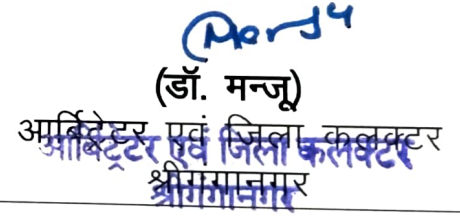 (डॉ. मन्जू)
आर्बिट्रेटर एवं जिला कलक्टर
आर्बिट्रेटर एवं जिला कलक्टर
श्रीगंगानगर
श्रीगंगानगर